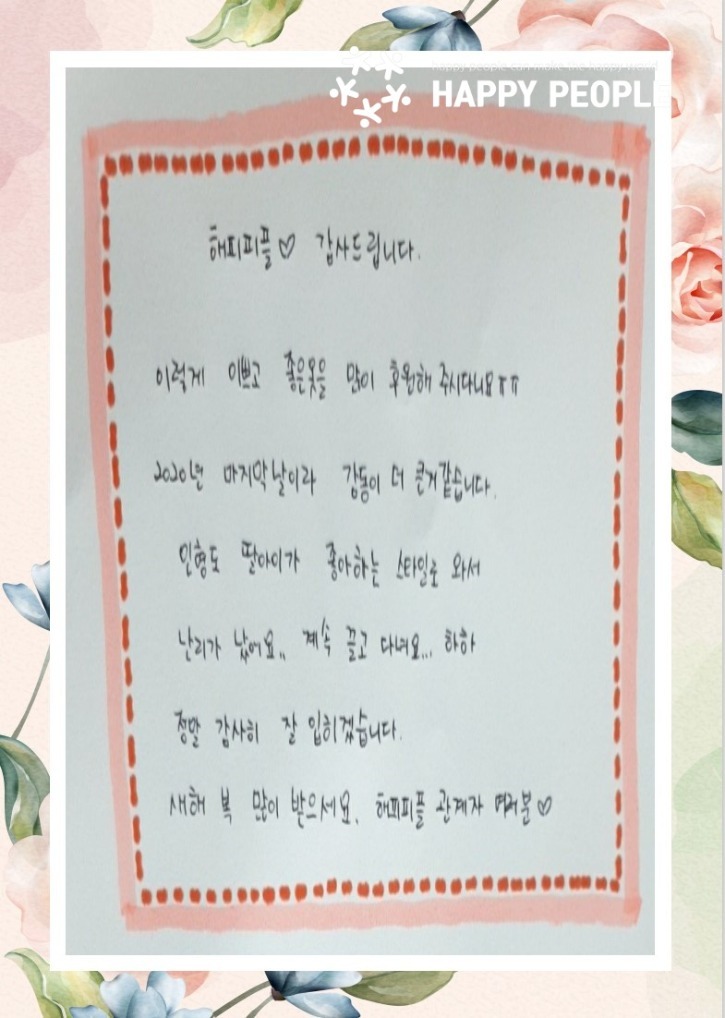 happy people can make the happy world
HAPPY PEOPLE
해피피플♡ 감사드립니다.
이렇게 이쁘고 좋은옷을 많이 후원해 주시다니요ㅠㅠ
2020년 마지막날이라 감동이 더 큰거같습니다.
인형도 딸아이가 좋아하는 스타일로 와서
난리가 났어요.. 계속 끌고 다녀요... 하하
정말 감사히 잘 입히겠습니다.
새해 복 많이 받으세요. 해피피플 관계자 여러분♡